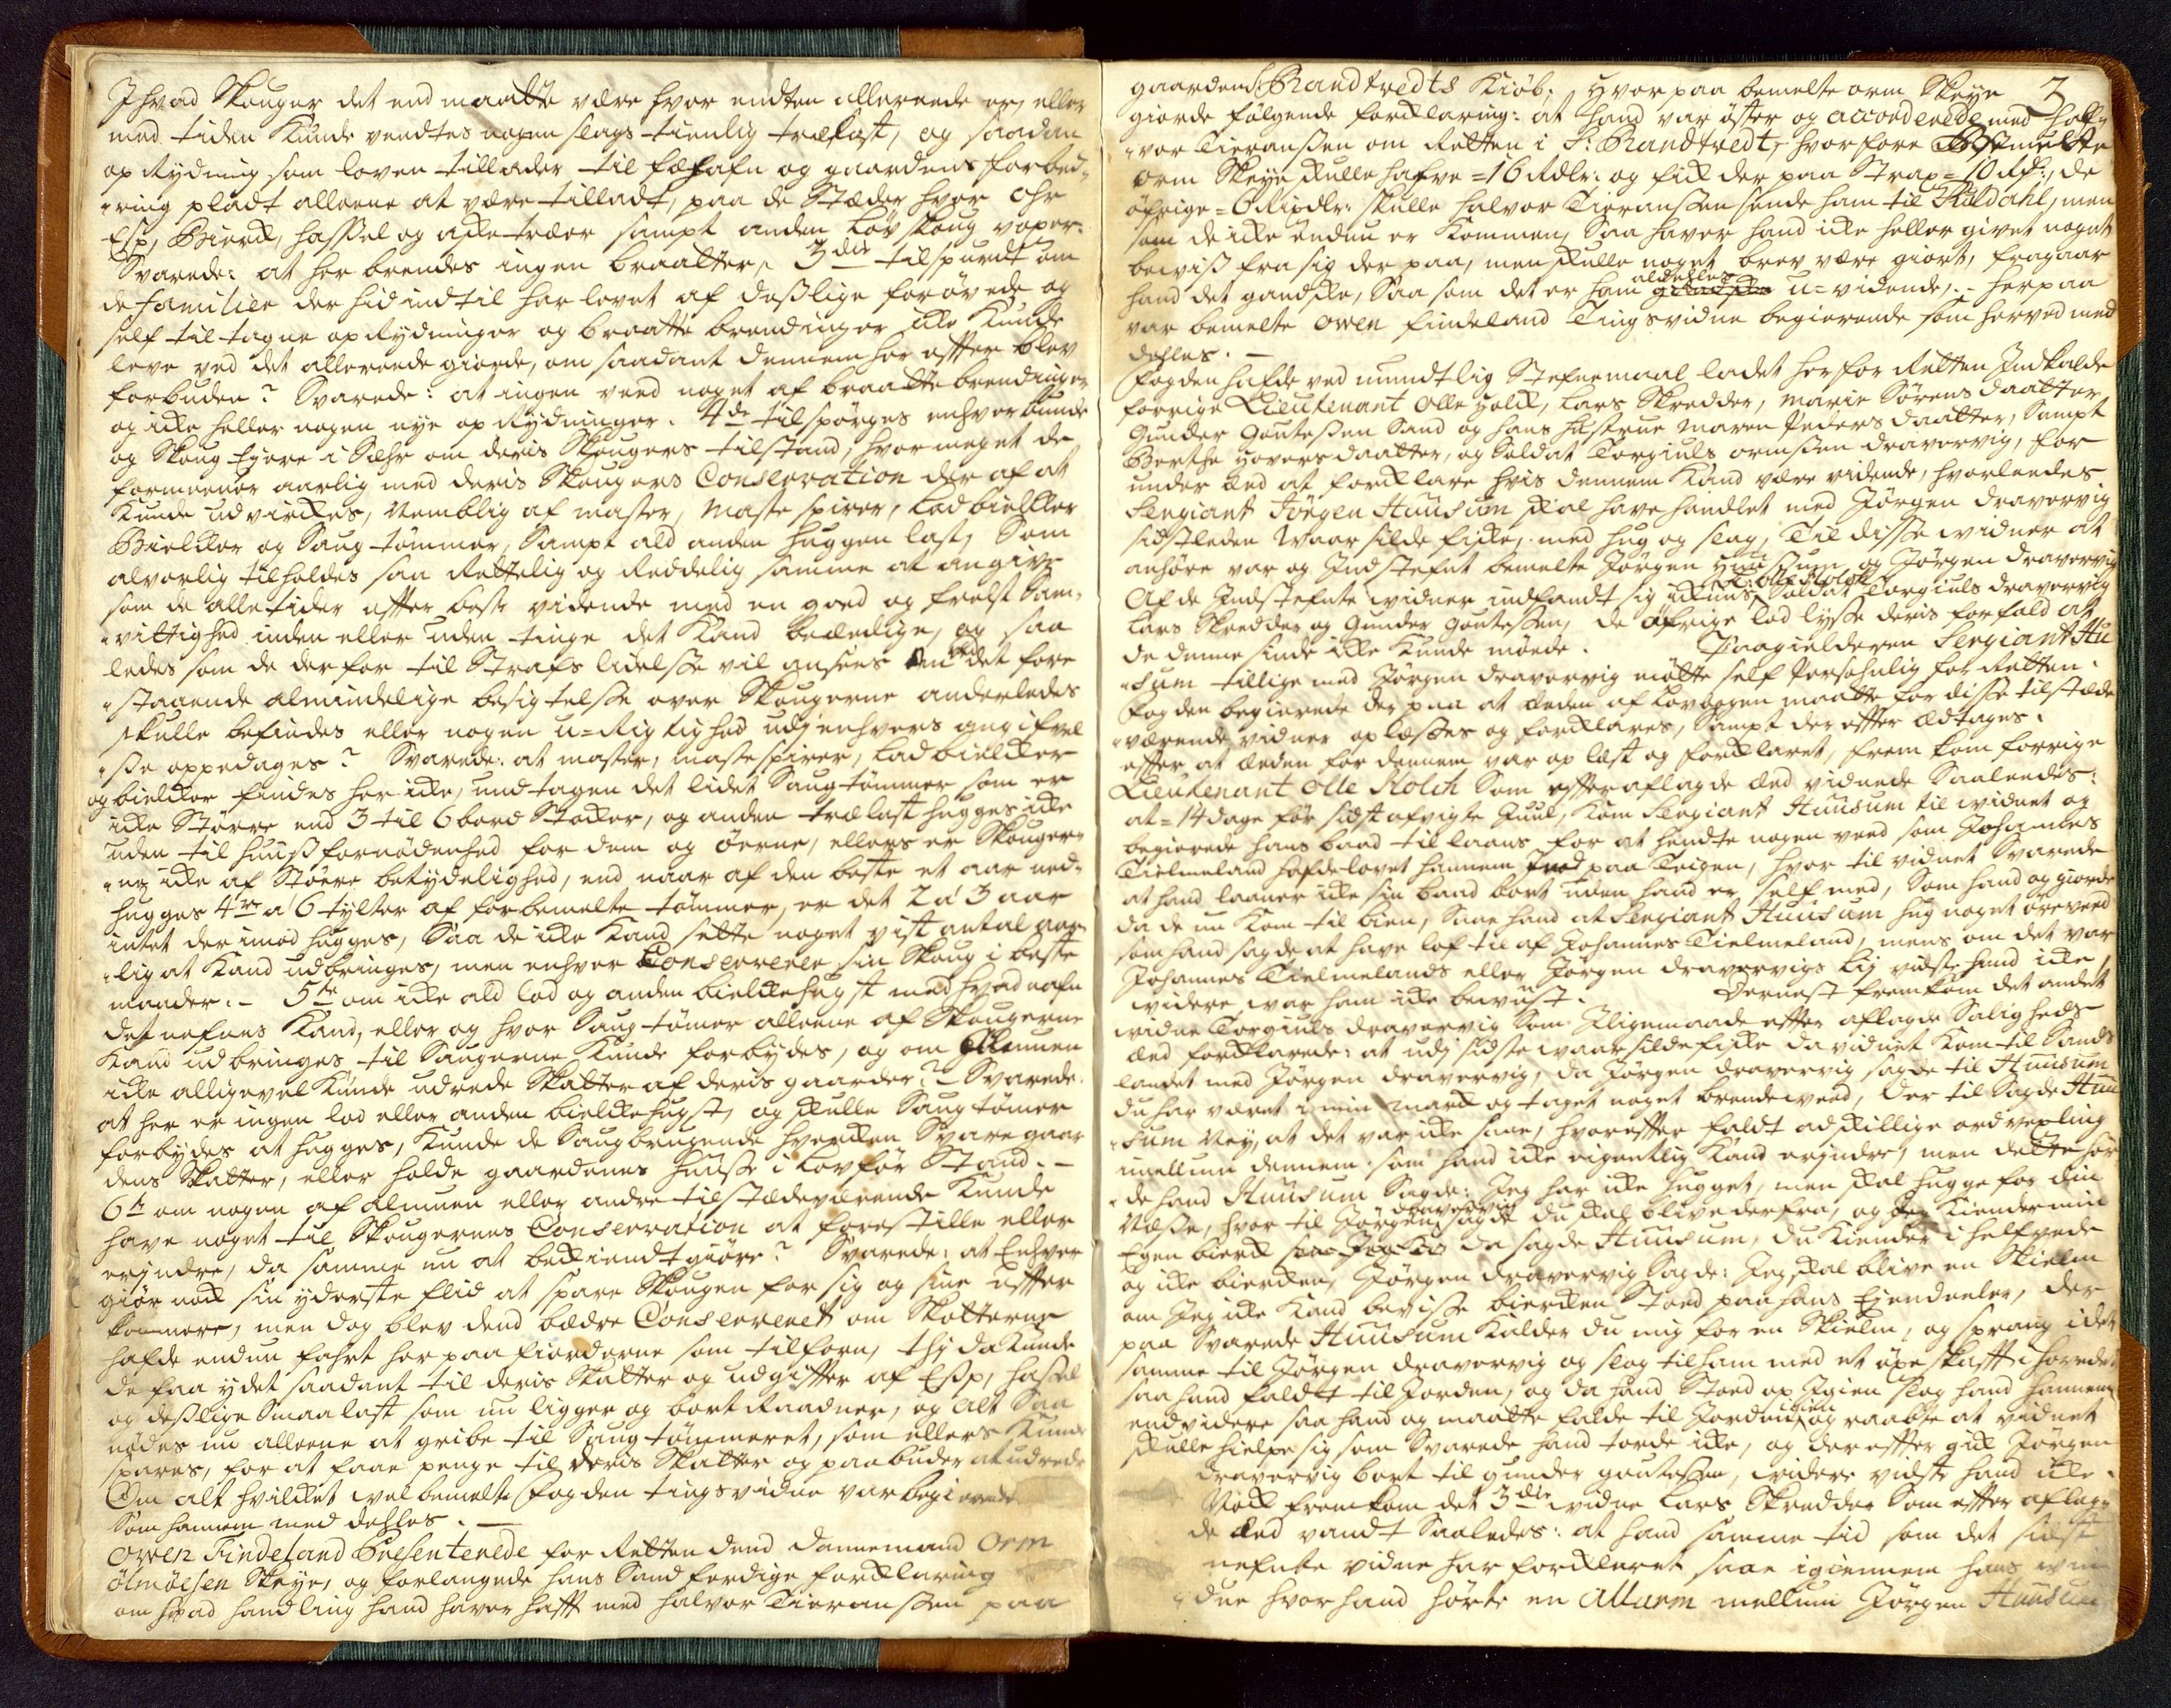 I hvad Skouger det end maatte være hvor endten allereede er, eller
med tiden Kunde ventes nogen slags tienlig trælast, og saadan
op Rydning som loven tillader til fæhafn og gaardens forbed-
"ring pladt alleene at være tilladt, paa de Stæder hvor Ohr
Esp, Birck, hassel og aske træer sampt anden løv skoug voxer:
Svarede: at her brendes ingen braatter, 3die tilspurdt om
de familier der hid indtil har levet af deslige forøvede og
self til tagne op Rydninger og braatte brendinger icke Kunde
leve ved det allereede giorde, om saadant dennem her effter blev
forbuden? Svarede: at ingen veed noget af braatte brendinger
og icke heller nogen nye op Rydninger. 4de tilspørges enhver bunde
og Skoug Eyere i Sæhr om deris Skougers tilstand, hvor meget de
formeener aarlig med deris Skougers Conservation der af at
Kunde udvirckes, Nemblig af master, Maste spirer, Lad bielcker
Bielcker og Saug tømmer, Sampt ald anden huggen last, Som
alvorlig tilholdes saa Rettelig og Reddelig samme at angive
som de alle tider effter beste vidende med en goed og frelst Sam-
"vittighed inden eller uden tinge det Kand beædige, og saa
ledes som de derfor til Strafs lidelse vil ansees om det fore
"staaende almindelige besigtelse over Skougerne anderledes
skulle befindes eller nogen u-Rigtighed udj enhvers angifvel
"se oppedages? Svarede: at master, maste spirer, Lad bielcker
og bielcker findes her icke, und tagen det lidet Saugtømmer som er
icke Større end 3 til 6 bord Stocker, og anden trælast hugges icke
uden til huus fornødenhed for dem og øerne, ellers er Skouger-
"ne icke af Større betydelighed, end naar af den beste et aar ned-
hugges 4re a 6 tylter af forbemelte tømmer, er det 2 a 3 aar
intet der imod hugges, Saa de icke Kand sette noget vist antal aar-
"lig at Kand udbringes, men enhver Conserverer sin Skoug i beste
maader. - 5te om icke ald lod og anden bielckehugst med hvad nafn
det nefnes Kand, eller og hvor Saug tømer alleene af Skougerne
Kand ud bringes til Saugerne Kunde forbydes, og om Almuen
icke alligevel Kunde udrede Skatter af deris gaarder? - Svarede:
at her er ingen lod eller anden bielckehugst, og skulle Saug tømer
forbydes at hugges, Kunde de Saugbrugende hvercken Svare gaar
dens Skatter, eller holde gaardenes huuse i Lovfør Stand. -
6te om nogen af almuen eller andre tilstædeværende Kunde
have noget til Skougernes Conservation at forestille eller
erjndre, da samme nu at bekiendtgiøre? Svarede: at Enhver
giør nock sin yderste flid at spare Skougen for sig og sine effter
kommere, men dog blev dend bædre Conserveret om Skotterne
hafde endnu fahrt her paa fiorderne som tilforn, thj da Kunde
de faa ydet saadant til deris Skatter og udgiffter af Esp, hassel
og deslige Smaa last som nu ligger og bort Raadner, og alt Saa
nødes nu alleene at gribe til Saug tømmeret, som ellers Kunde
spares, for at faae penge til deris Skatter og paabuder at udrede
Om alt hvilcket velbemelte fogden tingsvidne var begierende
Som hannem med dehles. -
Owen Findeland Præsenterede for Retten dend dannemand Orm
Ølmøesen Skeye, og forlangede hans Sandferdige forklaring
om hvad handling hand haver hafft med Halvor Tieransen paa
3
gaardens S: Brandtvedts Kiøb, hvorpaa bemelte orm Skeye
giorde følgende forklaring: at hand var øster og accorderede med Hall-
"vor Tieransen om Retten i S: Brandtvedt, hvorfore Bemelte
orm Skeye skulle hafve = 16 Rdlr: og fick der paa Strax = 10 Rd:, de
øfrige = 6 Rixdlr: skulle halvor Tieransen sende ham til Kildahl, men
som de icke endnu er Kommen, Saa haver hand icke heller givet noget
beviis fra sig der paa, men skulle noget brev være giort, fragaar
hand det gandske, Saa som det er ham aldehles u-vidende. - herpaa
var bemelte Owen findeland Tingsvidne begierende som herved med
dehles. -
fogden hafde ved mundtlig Stefnemaal ladet her for Retten Indkalde
forrige Lieutenant Olle Holck, Lars Skredder, Marie Sørens daatter
Gunder Goutesen Sand og hans hustrue Maren Peders daatter, Sampt
Berthe Hovers daatter, og Soldat Torgiuls ormsen dravervig, for
under æed at forklare hvis dennem Kand være vidende, hvorleedes
Sergiant Jørgen Huusum skal have handlet med Jørgen dravervig
sidstleden Vaar silde fiske, med hug og slag, Til disse vidner at
anhøre var og Indstefnt bemelte Jørgen Huusum og Jørgen dravervig
Af de Indstefnte vidner indfandt sig ickuns L: Olle Holck Soldat Torgiuls dravervig
Lars Skredder og Gunder Goutesen, de øfrige lod lyse deris forfald at
de denne sinde icke Kunde møede. Paagielderen Sergiant Hu
"sum tillige med Jørgen dravervig møtte self Personlig for Retten.
fogden begierede der paa at æden af Lovbogen maatte for disse tilstæde
"værende vidner oplæses og forklares, Sampt der effter ædtages.
effter at æden for dennem var op læst og forklaret, frem kom forrige
Lieutenant Olle Holch Som effter aflagde æed vidnede Saaleedes:
at = 14 dage før sidst afvigte Juul, Kom Sergiant Huusum til vidnet og
begierede hans baad til laans for at hendte nogen veed som Johannes
Tielmeland hafde lovet hannem paa Teigen, hvor til vidnet Svarede
at hand laaner icke sin baad bort uden hand er self med, Som hand og giorde
da de nu Kom til bien, Saae hand at Sergiant Huusum hug noget øreveed
som hand sagde at have lof til af Johannes Tielmeland, mens om det var
Johannes Tielmelands eller Jørgen dravervigs Ey vidste hand icke,
videre var ham icke bevust. Dernest fremkom det andet
vidne Torgiuls dravervig Som Iligemaade effter aflagde Saligheds
æed forklarede: at udj sidste vaar sildefiske da vidnet Kom til Sands
landet med Jørgen dravervig, da Jørgen dravervig sagde til Huusum
du har været i min Marck og taget noget brendeveed, der til Sagde Huu
"sum Ney, at det var icke saae, hvoreffter faldt adskillige ordvexling
imellum dennem som hand icke eigentlig Kand erjndre, men dette hør
"de hand Huusum Sagde: Jeg har icke hugget, men skal hugge for din
Næse, hvor til Jørgen dravervig sagde du skal blive derfra, og Jeg Kiender min
Egen bierck da sagde Huusum, du Kiender i helfvede
og icke biercken, Jørgen dravervig Sagde: Jeg skal blive en Skielm
om Jeg icke Kand bevise biercken Stoed paa hans Eyendeeler, der
paa Svarede Huusum Kalder du mig for en Skielm, og sprang i det
samme til Jørgen dravervig og slog til ham med et øxe skafft i hovedet
saa hand faldt til Jorden, og da hand Stoed op Igien slog hand hannem
endvidere saa hand og maatte falde til Jorden igien og raabte at vidnet
skulle hielpe sig som Svarede hand torde icke, og der effter gick Jørgen
dravervig bort til Gunder Goutesen, videre vidste hand icke.
Nock fremkom det 3die vidne Lars Skredder Som effter aflag-
de æed vandt Saaledes: at hand samme tid som det sidst
nefnte vidne har forklaret saae igiennem hans vin
"due hvor hand hørte en Allarm mellum Jørgen Huusum